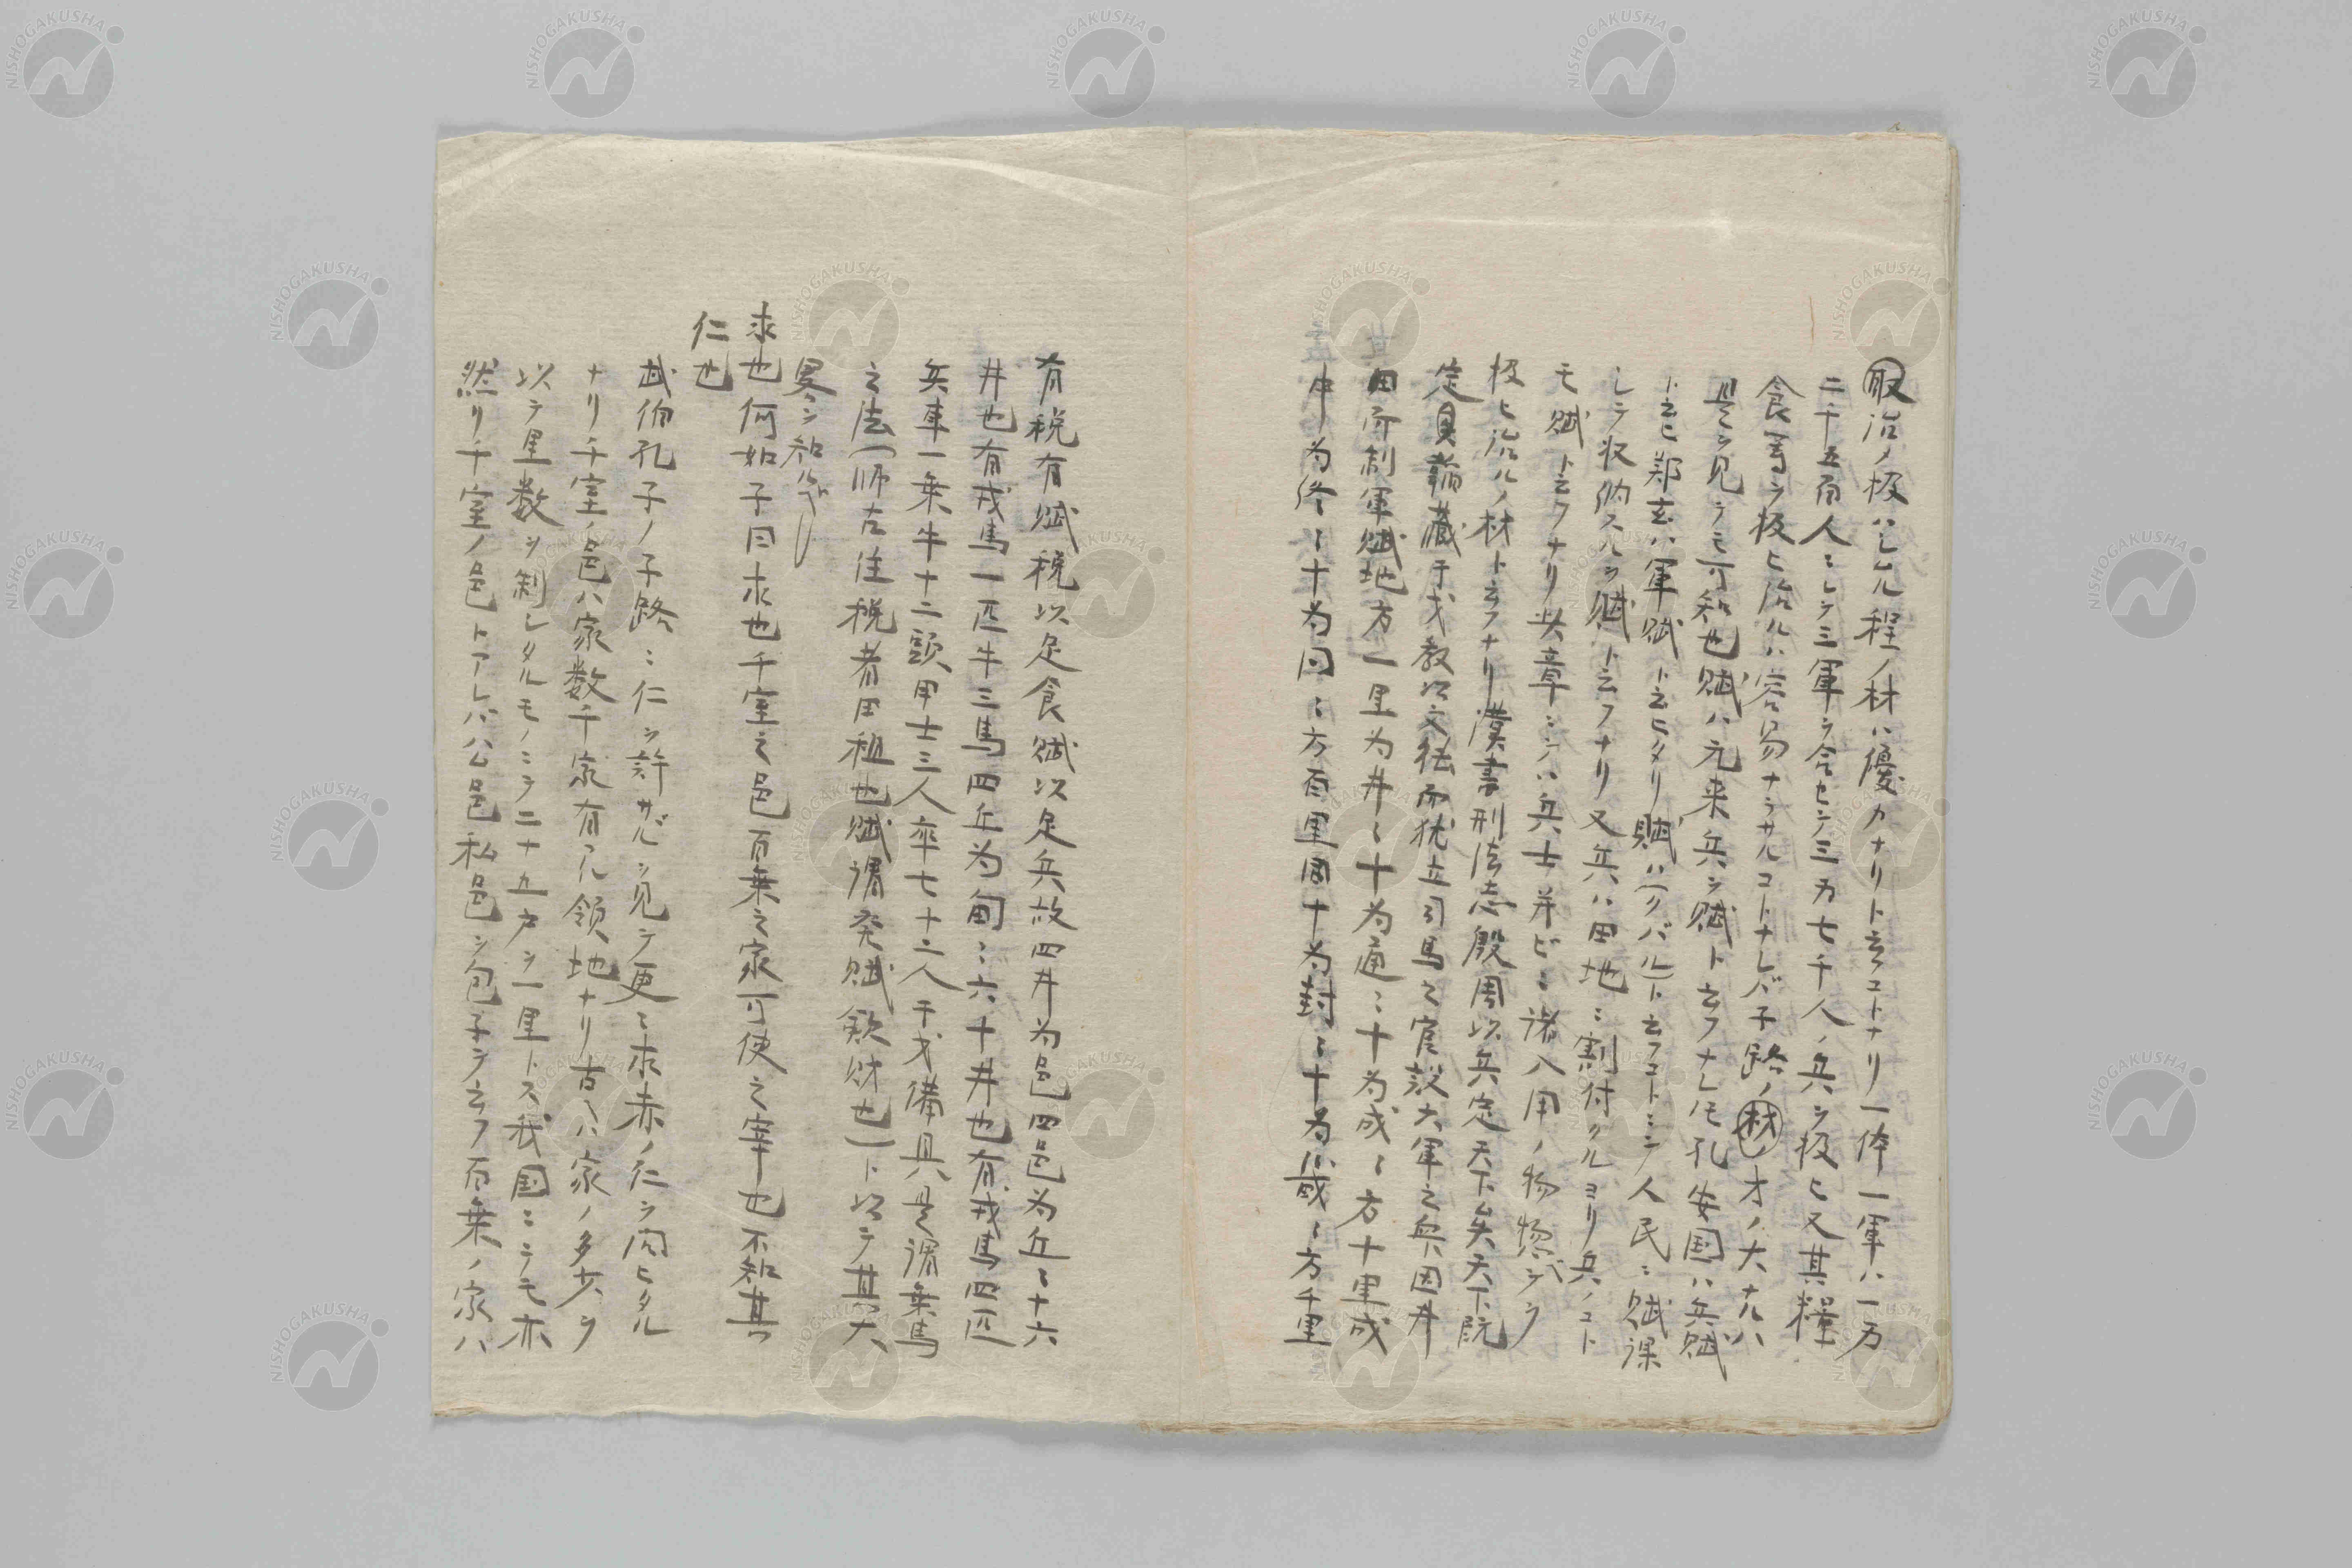 取治ノ扱ハレル程ノ材ハ優カナリト云コトナリ一体一軍ハ一万
二千五百人ニシテ三軍ヲ合セテ三万七千人ノ兵ヲ扱ヒ又其糧
食等ヲ扱ヒ治ルハ容易ナラサルコトナレバ子路ノ材ノ才ノ大ナルハ
是ヲ見テモ可知也賦ハ元来兵ヲ賦ト云フナレモ孔安国ハ兵賦
ト云ヒ鄭玄ハ軍賦ト云ヒタリ賦ハ(クバル)ト云フコトニシテ人民ニ賦課
シテ収納スルヲ賦ト云フナリ又兵ハ田地ニ割付クルヨリ兵ノコト
モ賦ト云フナリ此章ニテハ兵士并ビニ諸入用ノ物惣ベテヲ
扱ヒ治ルノ材ト云フナリ漢書刑法志殷周以兵定天下矣天下既
定員輪蔵于戈教以文徳而猶立司馬之官設六軍之衆因井
田而制軍賦地方一里为井〻十为通〻十为成〻方十里成
中为終〻十为同〻方百里同十为封〻十为畿〻方千里
有税有賦税以足食賦以足兵故四井为邑四邑为丘〻十六
井也有戎馬一匹牛三馬四丘为甸〻六十井也有戎馬四匹
兵車一乗牛十二頭甲士三人卒七十二人干戈備具是謂乗馬
之法(師古注税者田租也賦謂発賦斂財也)ト以テ其大
畧ヲ知ルベシ
求也何如子曰求也千室之邑百乗之家可使之宰也不知其
仁也
武伯孔子ノ子路ニ仁ヲ許サルヾヲ見テ更ニ求赤ノ仁ヲ問ヒタル
ナリ千室ノ邑ハ家数千家有ル領地ナリ古ヘハ家ノ多少ヲ
以テ里数ヲ制シタルモノニテ二十五戸ヲ一里トス我国ニテモ亦
然リ千室ノ邑トアレバ公邑私邑ヲ包子テ云フ百乗ノ家ハ